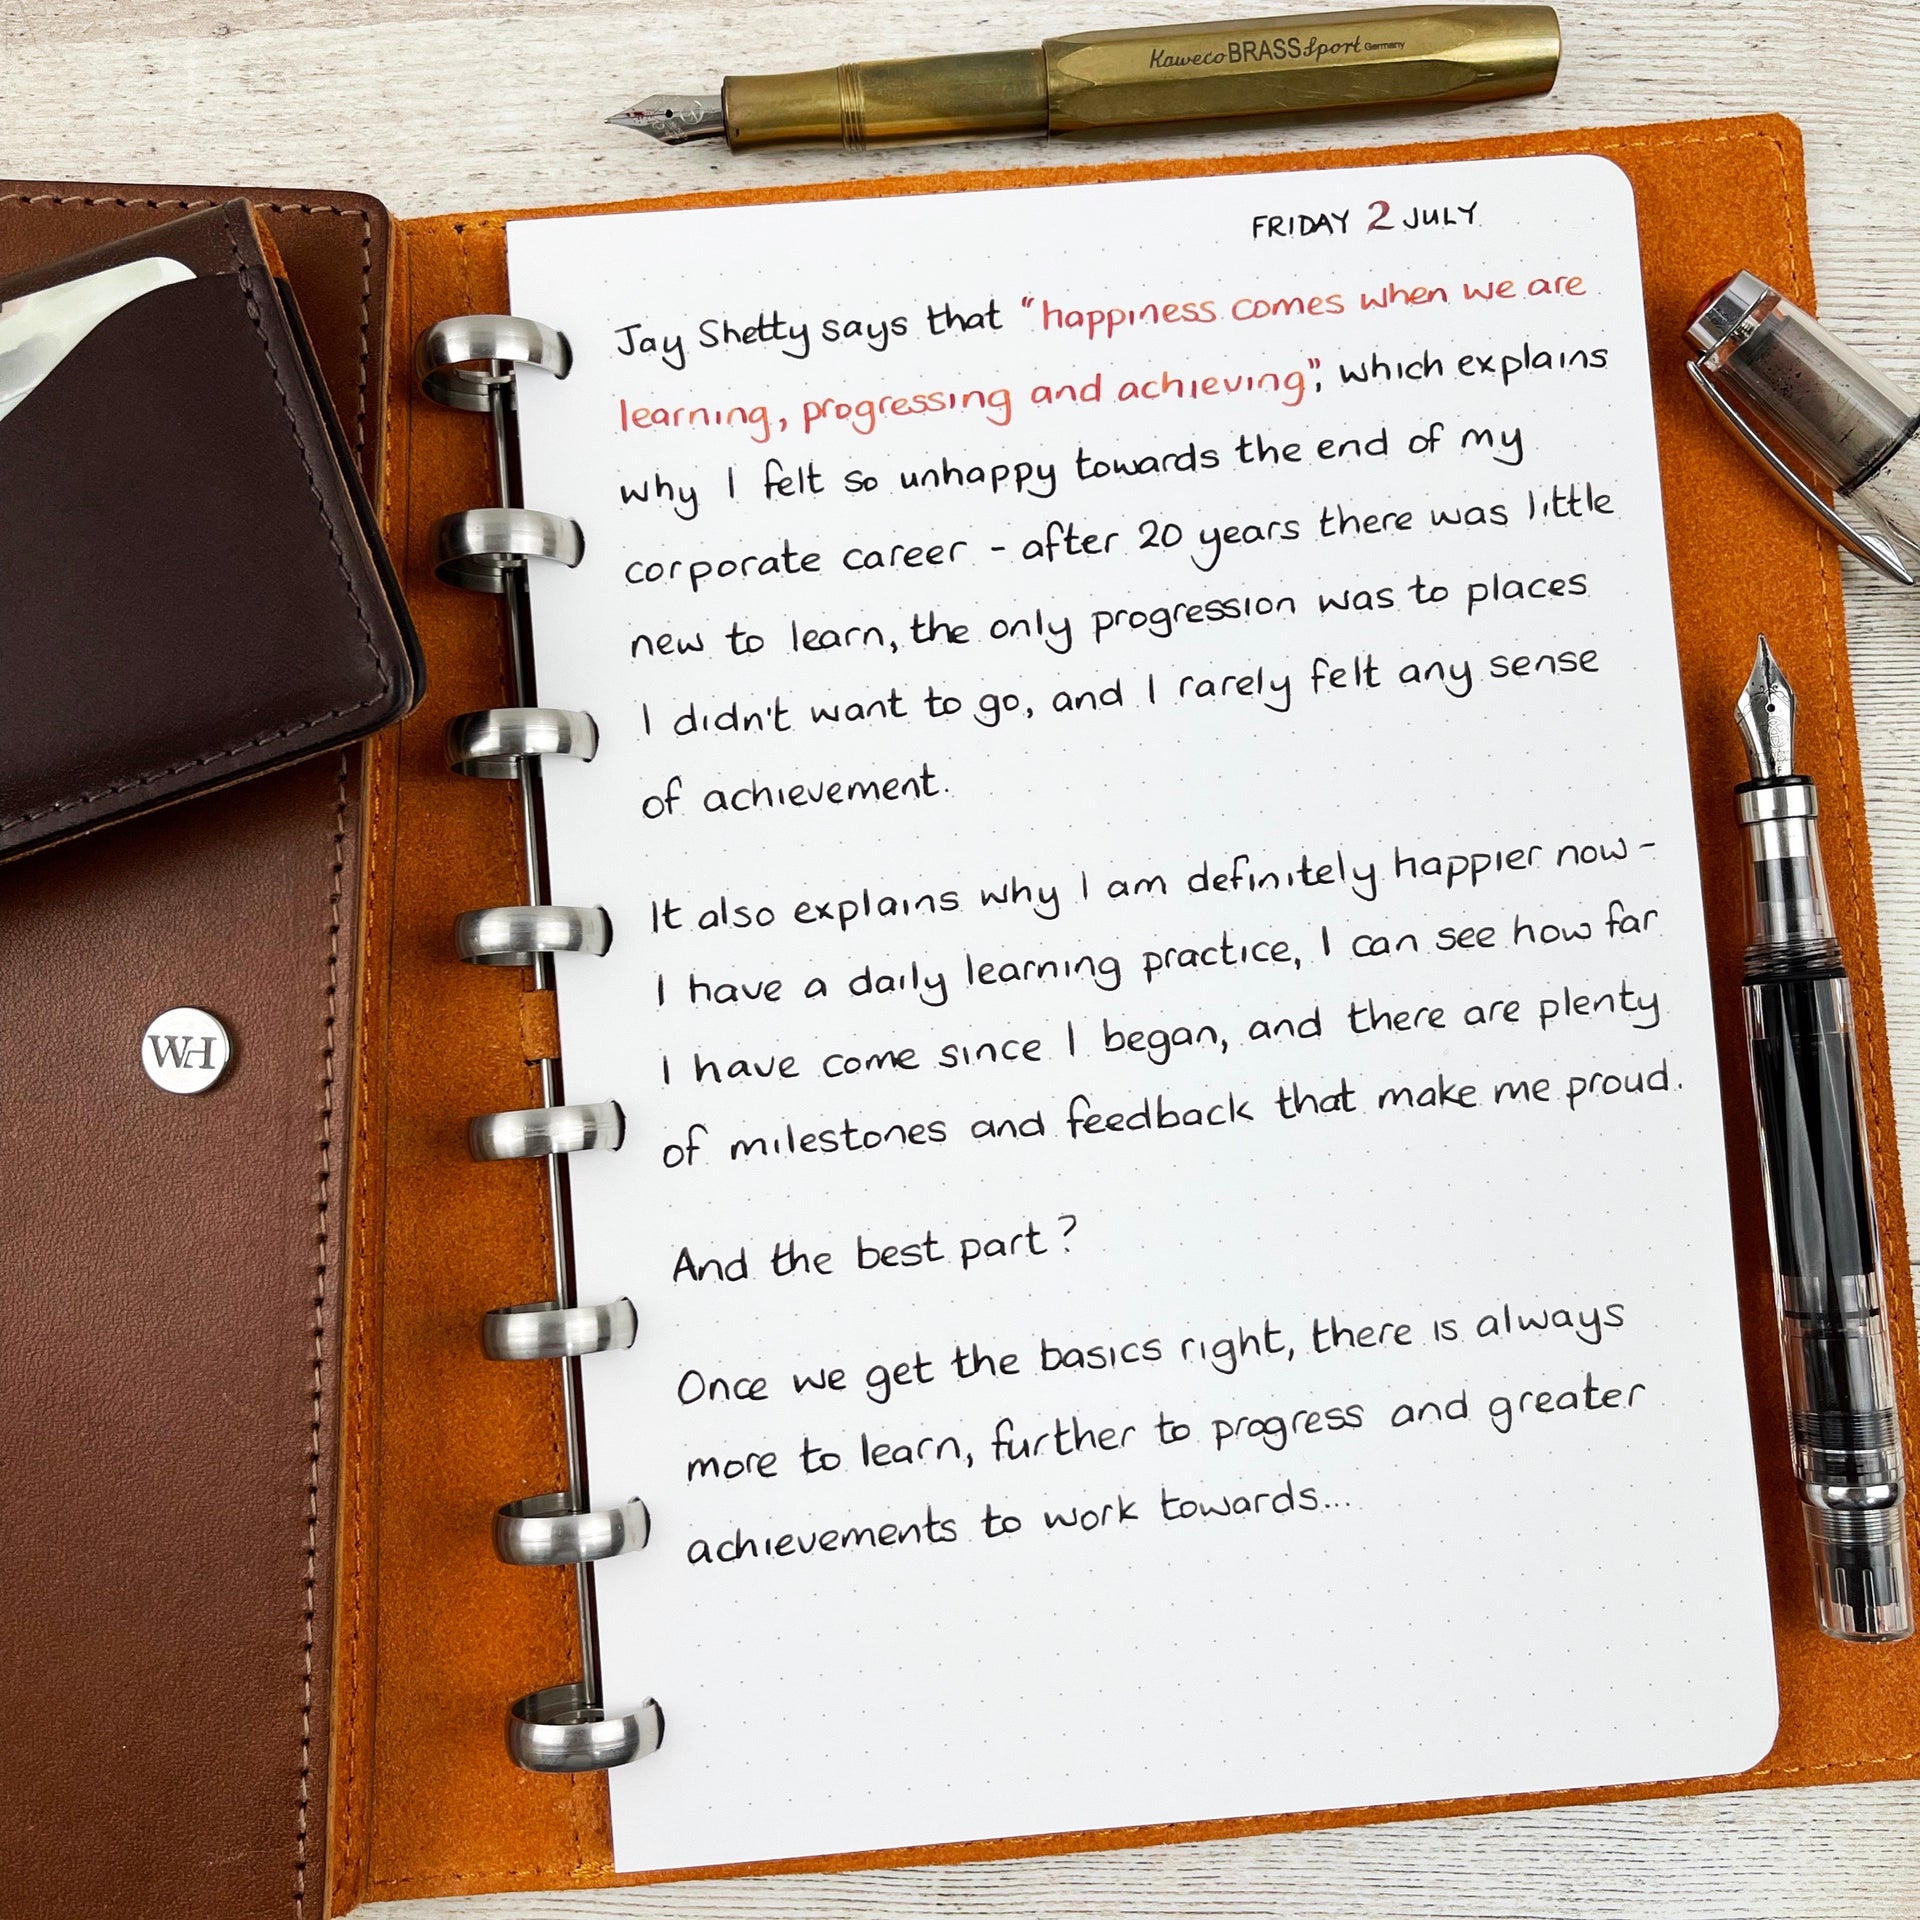 Kaweco BRASS Sport Germany
FRIDAY 2 JULY
Jay Shetty says that "happiness comes when we are
learning, progressing and achieving", which explains
why I felt so unhappy towards the end of my
corporate career - after 20 years there was little
new to learn, the only progression was to places
I didn't want to go, and I rarely felt any sense
of achievement.
It also explains why I am definitely happier now -
I have a daily learning practice, I can see how far
I have come since I began, and there are plenty
of milestones and feedback that make me proud.
And the best part?
Once we get the basics right, there is always
more to learn, further to progress and greater
achievements to work towards...
WH